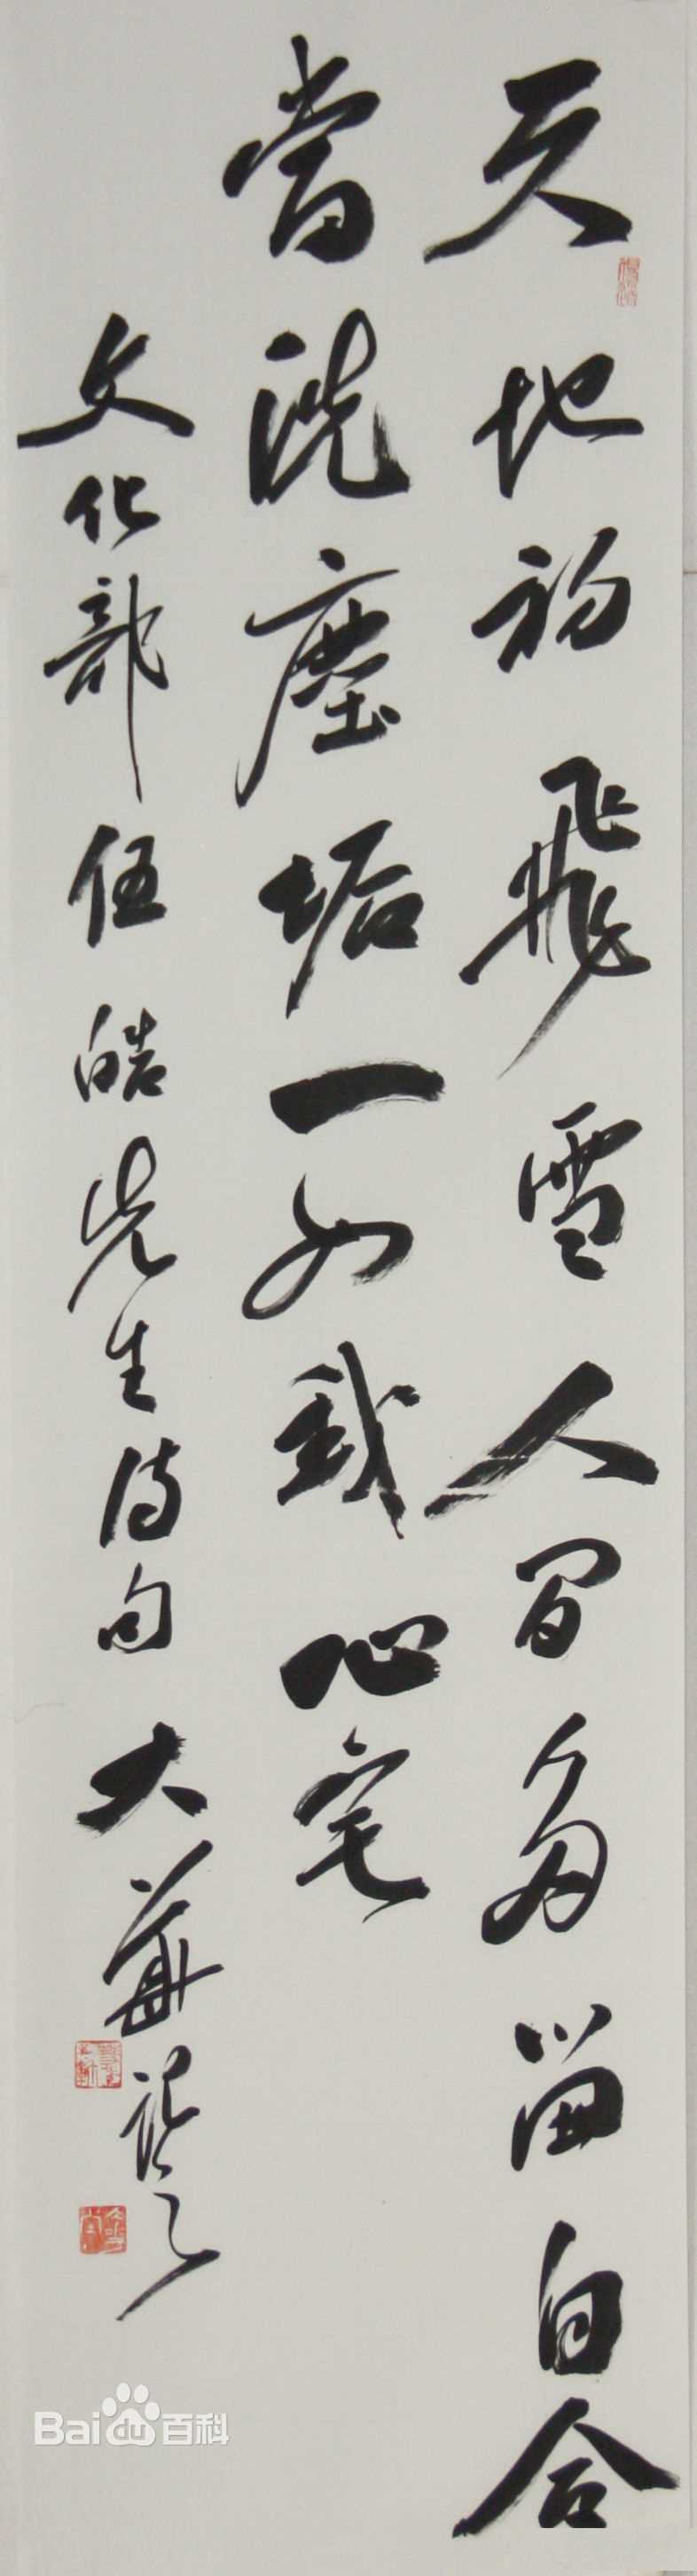 天地初飛雪人間多留白合
當洗塵垢一如我心宅
文化部伍皓先生詩句 大華記之
Baidu百科